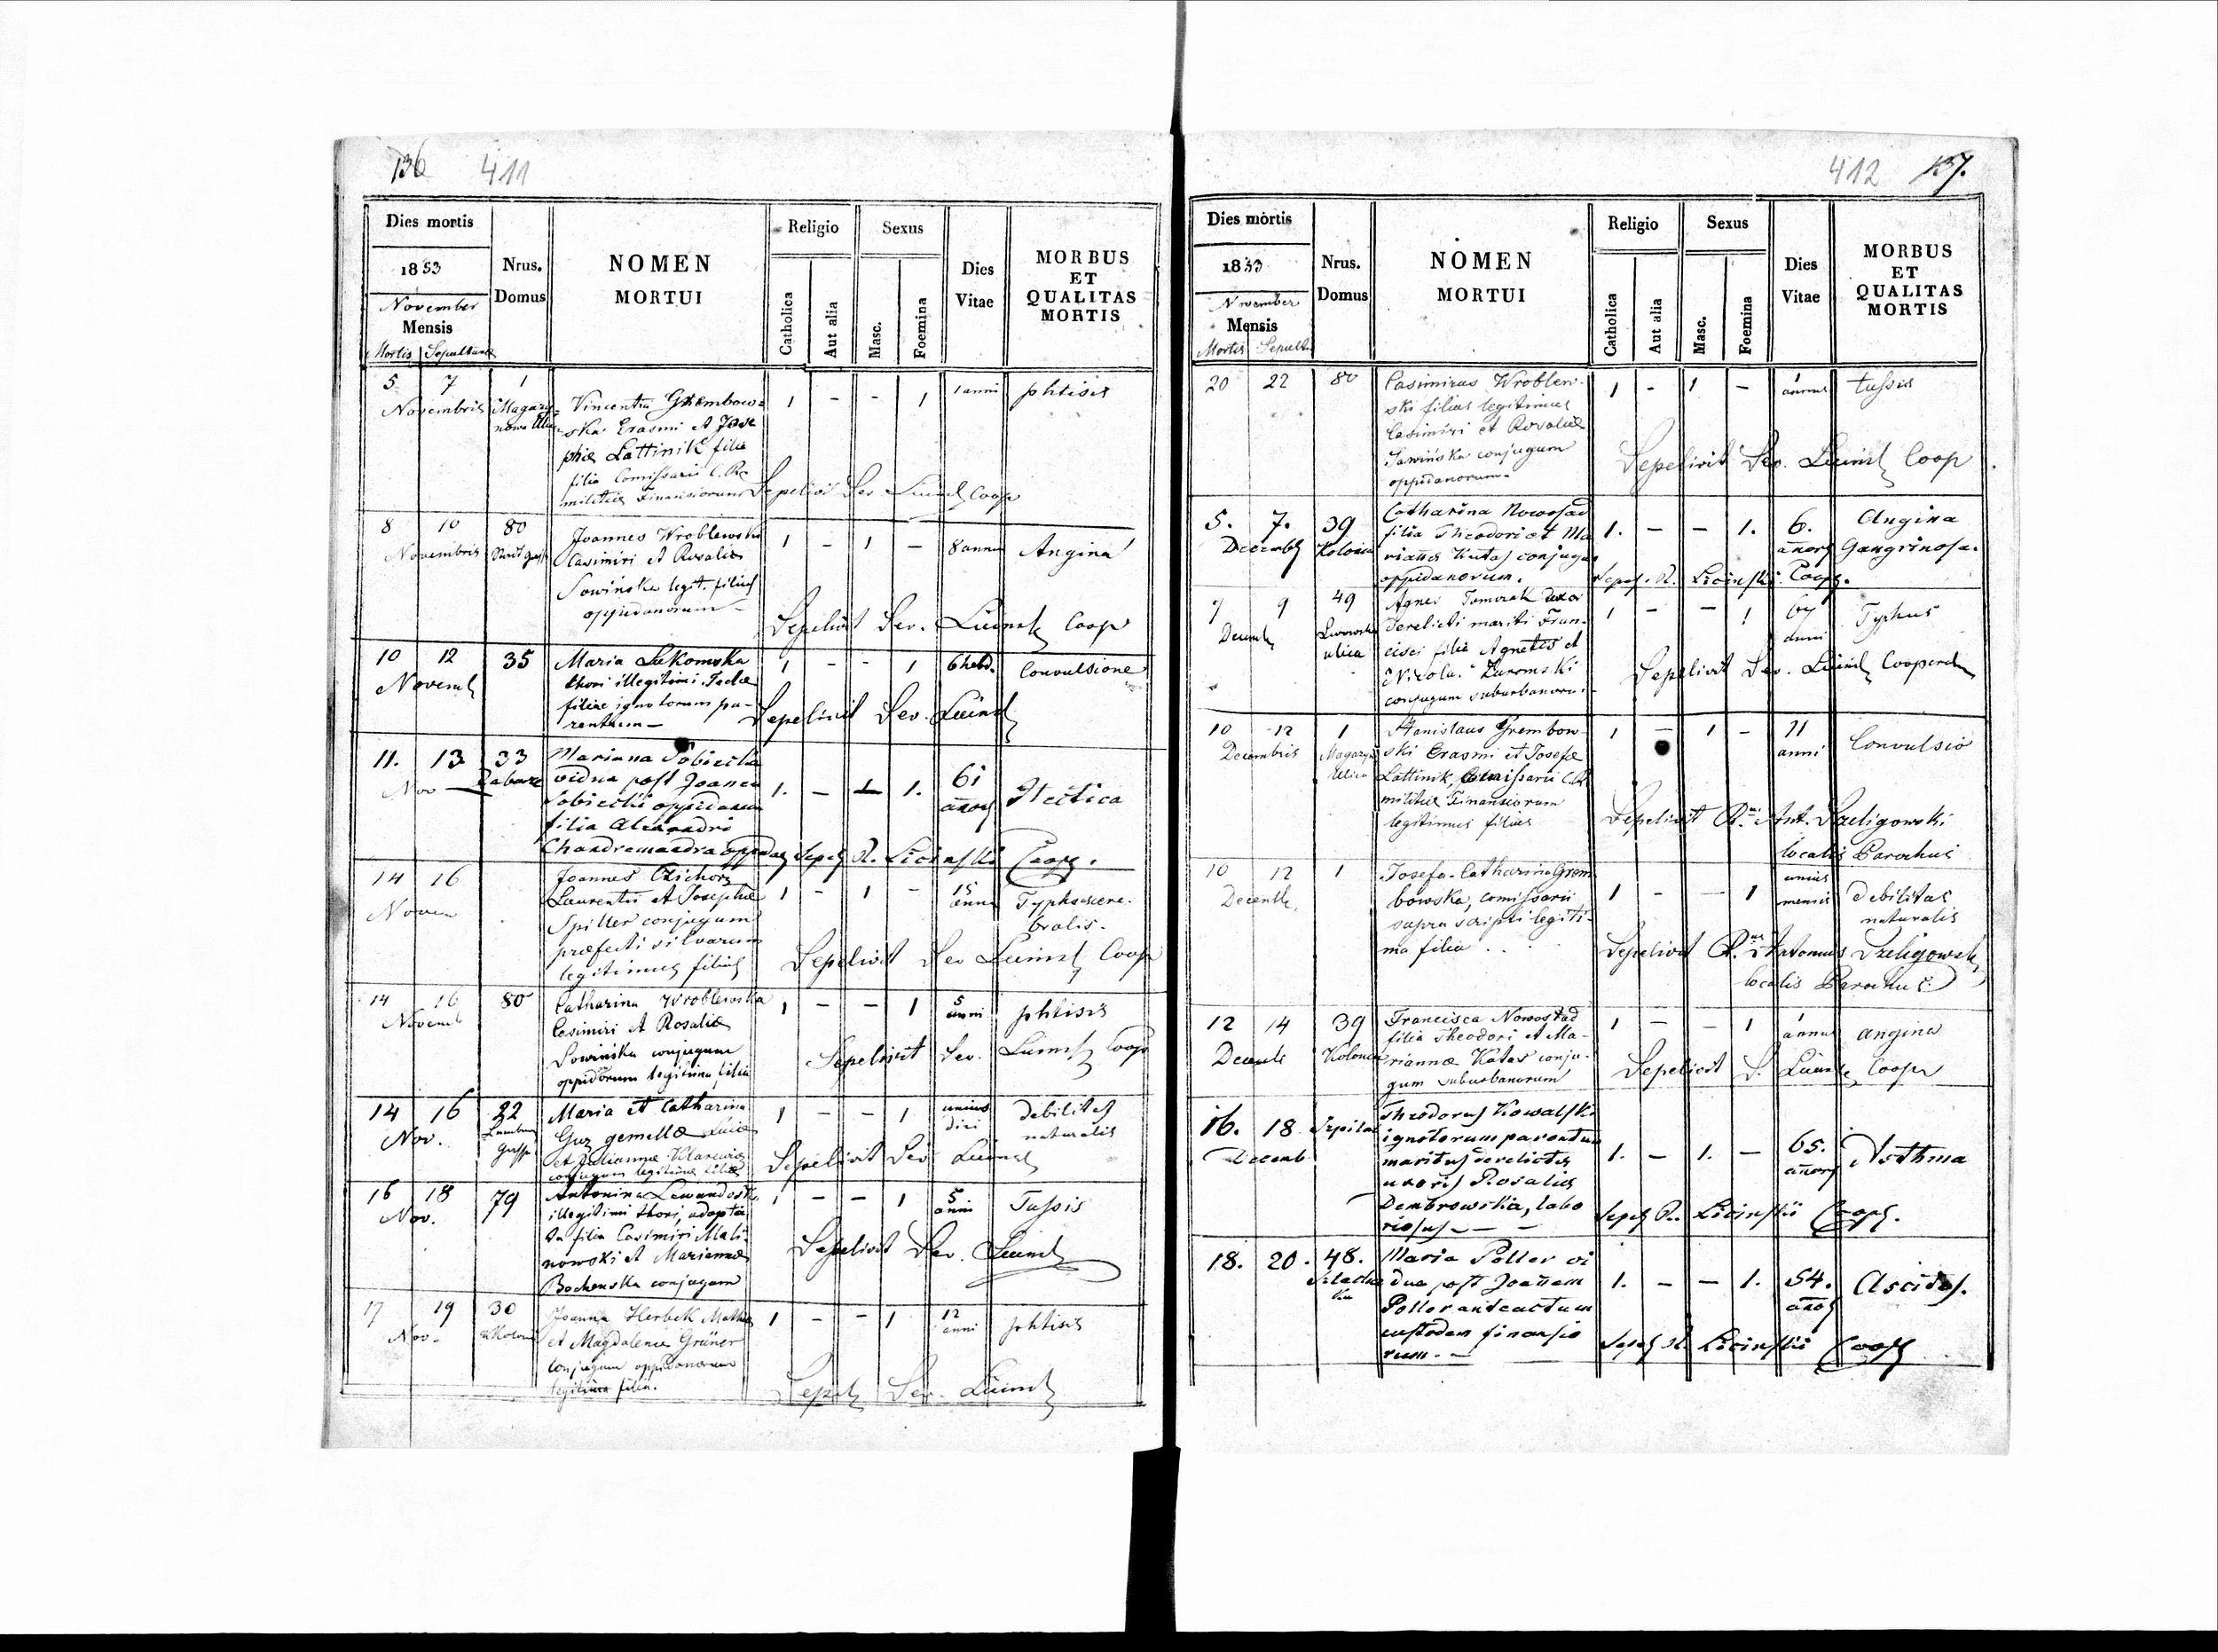 136 411
Dies mortis
1853
November
Mensis
Mortis Sepulturae
Nrus.
Domus
NOMEN
MORTUI
Religio
Catholica
Aut alia
Sexus
Masc.
Foemina
Dies
Vitae
MORBUS
ET
QUALITAS
MORTIS
5 7 1 1 - - 1 1 anni phtisis
Novembris Magazy-
Vincentia Grembow-
ska Erasmi et Jose
phae Lattinik filia
filia Comissarii C. R.
militiae Finansiorum Sepelivit Sev. Coop
8 10 80 Joannes Wroblewski 1 - 1 - 8 anni Angina
Novembris Casimiri et Rosaliae
Sowińska legit. filius
oppidanorum -
Sepelivit Sev. Coop
10 12 35 Maria Lukomska 1 - - 1 6 hebd. Convulsione
Novemb thori illegitimi
filiae ignotorum pa-
rentum -
Sepelivit Sev.
11. 13 33 Marianna Sobiecka 1. - - 1. 61 Hectica
Nov vidua post Joanem
Sobiecki oppidanum
filia Alexandri
Coop.
14 16 Joannes 1 - 1 - 15 Typhus cere-
Novem Laurentii et Josephae bralis.
Spitter conjugum
praefecti silvarum
legitimus filius
Sepelivit Sev Coop
14 16 80 Catharina Wroblewska 1 - - 1 5 anni phtisis
Novemb Casimiri et Rosaliae
Sowińska conjugum
oppidorum legitima filia
Sepelivit Sev. Coop
14 16 22 Maria et Catharina 1 - - 1 unius debilitas
Nov. Guz gemellae diei naturalis
et Julianna
conjugum legitimae filiae
Sepelivit Sev
16 18 79 Antonina 1 - - 1 5 Tussis
Nov. illegitimi thori, adopta- anni
ta filia Casimiri Mali-
nowski et Marianna
Bochenska conjugum
Sepelivit Sev.
17 19 30 Joanna Herbek Mathia 1 - - 1 12 phtisis
Nov. et Magdalena Grüner anni
conjugum oppidanorum
legitima filia.
Sepel Sev.
412 137.
Dies mortis
1853
November
Mensis
Mortis Sepult.
Nrus.
Domus
NOMEN
MORTUI
Religio
Catholica
Aut alia
Sexus
Masc.
Foemina
Dies
Vitae
MORBUS
ET
QUALITAS
MORTIS
20 22 80 Casimirus Wroblew- 1 - 1 - 1 annus tussis
ski filius legitimus
Casimiri et Rosaliae
Sowińska conjugum
oppidanorum -
Sepelivit Sev. Coop
5. 7. 39 Catharina Nowosad 1. - - 1. 6. Angina
Decembr Kolonia filia Theodori et Ma annor Gangrinosa.
rianna Kutas conjugum
oppidanorum.
Sepel. R. Licinski Coop.
7 9 49 Agnes Tomczak uxor 1 - - 1 67 Typhus
Decemb Lwowska derelicti mariti Fran- anni
ulica cisci filia Agnetis et
conjugum suburbanorum
Sepelivit Sev. Cooperat
10 12 1 Stanislaus Grembow- 1 - 1 - 11 Convulsio
Decembris ski Erasmi et Josefa anni
Ulica Lattinik, Comissarii C. R.
militiae Finansiorum
legitimus filius
Sepelivit Ant. Szeligowski
localis Parochus
10 12 1 Josefa Catharina Grem 1 - - 1 unius debilitas
Decemb. bowska, comissarii mensis naturalis
supra scripti legiti-
ma filia
Sepelivit Antonius Szeligowski
localis Parochus
12 14 39 Francisca Nowosad 1 - - 1 1 annus angina
Decemb Kolonia filia Theodori et Ma-
rianna Katas conju-
gum suburbanorum
Sepelivit S. Coop
16. 18 Szpital Theodorus Kowalski 1. - 1. - 65. Asthma
Decemb ignotorum parentum annor
maritus derelictus
uxoris Rosalia
Dembrowska, labo
riosus - -
Sepel R. Licinskii Coop.
18. 20. 48. Maria Poller vi 1. - - 1. 54. Ascites.
dua post Joanem
Poller anteactum
custodem finansio
rum. -
Sepel R. Licinskii Coop